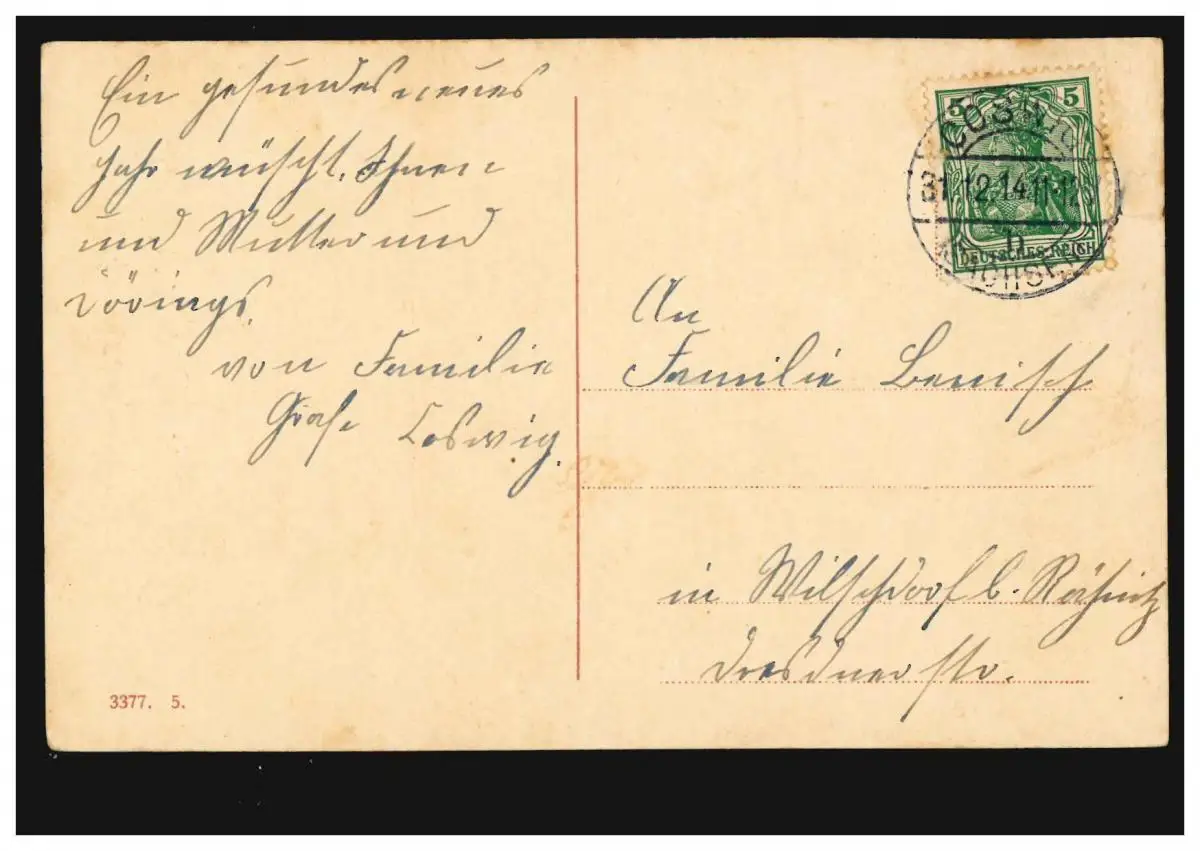 Ein gesundes neues
Jahr wüscht, Ihnen
und Mutter und
Dörings.
von Familie
Grafe Coswig.
3377. 5.
5 5
DEUTSCHES REICH
COSWIG
31.12.14.11-12
b
An
Familie Benisch
in Wilschdorf b. Rähnitz
Dresdnerstr.